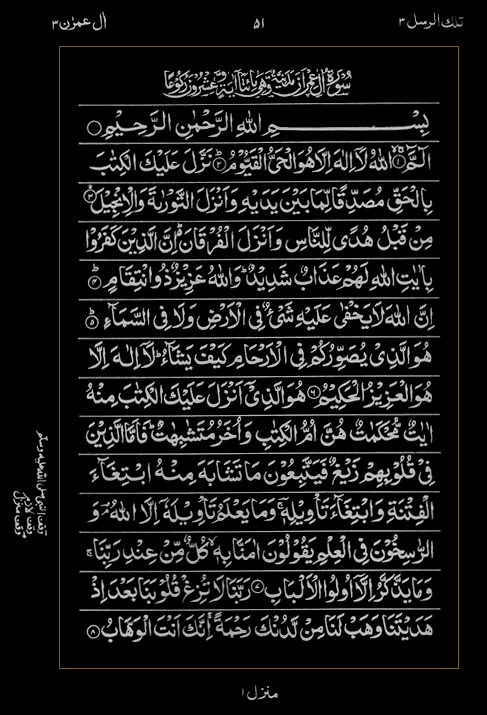 تلك الرسل ٣ ٥١ أل عمرن ٣
سُوْرَةُ اٰلِ عِمْرٰنَ مَدَنِيَّةٌ وَّهِيَ مِائَتَا اٰيَةٍ وَّعِشْرُوْنَ رُكُوْعًا
بِسْـــــــــمِ اللّٰهِ الرَّحْمٰنِ الرَّحِيْمِ
الٓمّٓ ۙ﴿۱﴾ اللّٰهُ لَاۤ اِلٰهَ اِلَّا هُوَ الْحَيُّ الْقَيُّوْمُ ؕ﴿۲﴾ نَزَّلَ عَلَيْكَ الْكِتٰبَ
بِالْحَقِّ مُصَدِّقًا لِّمَا بَيْنَ يَدَيْهِ وَاَنْزَلَ التَّوْرٰىةَ وَالْاِنْجِيْلَ ۙ﴿۳﴾
مِنْ قَبْلُ هُدًى لِّلنَّاسِ وَاَنْزَلَ الْفُرْقَانَ ؕ اِنَّ الَّذِيْنَ كَفَرُوْا
بِاٰيٰتِ اللّٰهِ لَهُمْ عَذَابٌ شَدِيْدٌ ؕ وَاللّٰهُ عَزِيْزٌ ذُو انْتِقَامٍ ؕ﴿۴﴾
اِنَّ اللّٰهَ لَا يَخْفٰى عَلَيْهِ شَيْءٌ فِي الْاَرْضِ وَلَا فِي السَّمَآءِ ؕ﴿۵﴾
هُوَ الَّذِيْ يُصَوِّرُكُمْ فِي الْاَرْحَامِ كَيْفَ يَشَآءُ ؕ لَاۤ اِلٰهَ اِلَّا
هُوَ الْعَزِيْزُ الْحَكِيْمُ ﴿۶﴾ هُوَ الَّذِيْۤ اَنْزَلَ عَلَيْكَ الْكِتٰبَ مِنْهُ
اٰيٰتٌ مُّحْكَمٰتٌ هُنَّ اُمُّ الْكِتٰبِ وَاُخَرُ مُتَشٰبِهٰتٌ ؕ فَاَمَّا الَّذِيْنَ
فِيْ قُلُوْبِهِمْ زَيْغٌ فَيَتَّبِعُوْنَ مَا تَشَابَهَ مِنْهُ ابْتِغَآءَ
الْفِتْنَةِ وَابْتِغَآءَ تَاْوِيْلِهٖ ؔ وَمَا يَعْلَمُ تَاْوِيْلَهٗۤ اِلَّا اللّٰهُ ۘ وَ
الرّٰسِخُوْنَ فِي الْعِلْمِ يَقُوْلُوْنَ اٰمَنَّا بِهٖ ۙ كُلٌّ مِّنْ عِنْدِ رَبِّنَا ۚ
وَمَا يَذَّكَّرُ اِلَّاۤ اُولُوا الْاَلْبَابِ ﴿۷﴾ رَبَّنَا لَا تُزِغْ قُلُوْبَنَا بَعْدَ اِذْ
هَدَيْتَنَا وَهَبْ لَنَا مِنْ لَّدُنْكَ رَحْمَةً ۚ اِنَّكَ اَنْتَ الْوَهَّابُ ﴿۸﴾
وقف النبي صلى الله عليه وسلم
وقف لازم
وقف منزل
منزل ۱